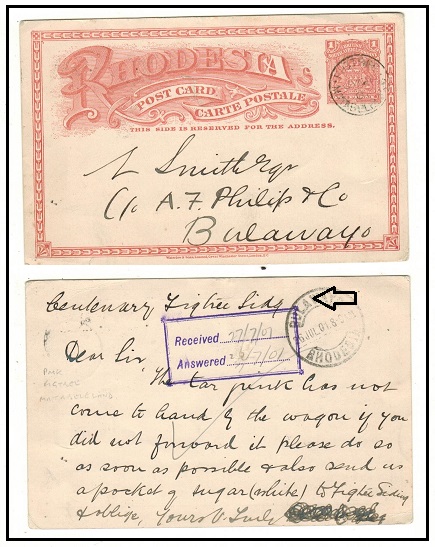 RHODESIA
POST CARD
CARTE POSTALE
THIS SIDE IS RESERVED FOR THE ADDRESS.
1
Smith Esqr
C/o A. F. Philip & Co
Bulawayo
Centenary Figtree Sidg
BULA
RHODESIA
Received 27/7/01
Answered
Dear Sir
The tar punk has not
come to hand by the wagon if you
did not forward it please do so
as soon as possible & also send us
a pocket of sugar (white) to Figtree Siding
& oblige, Yours Truly